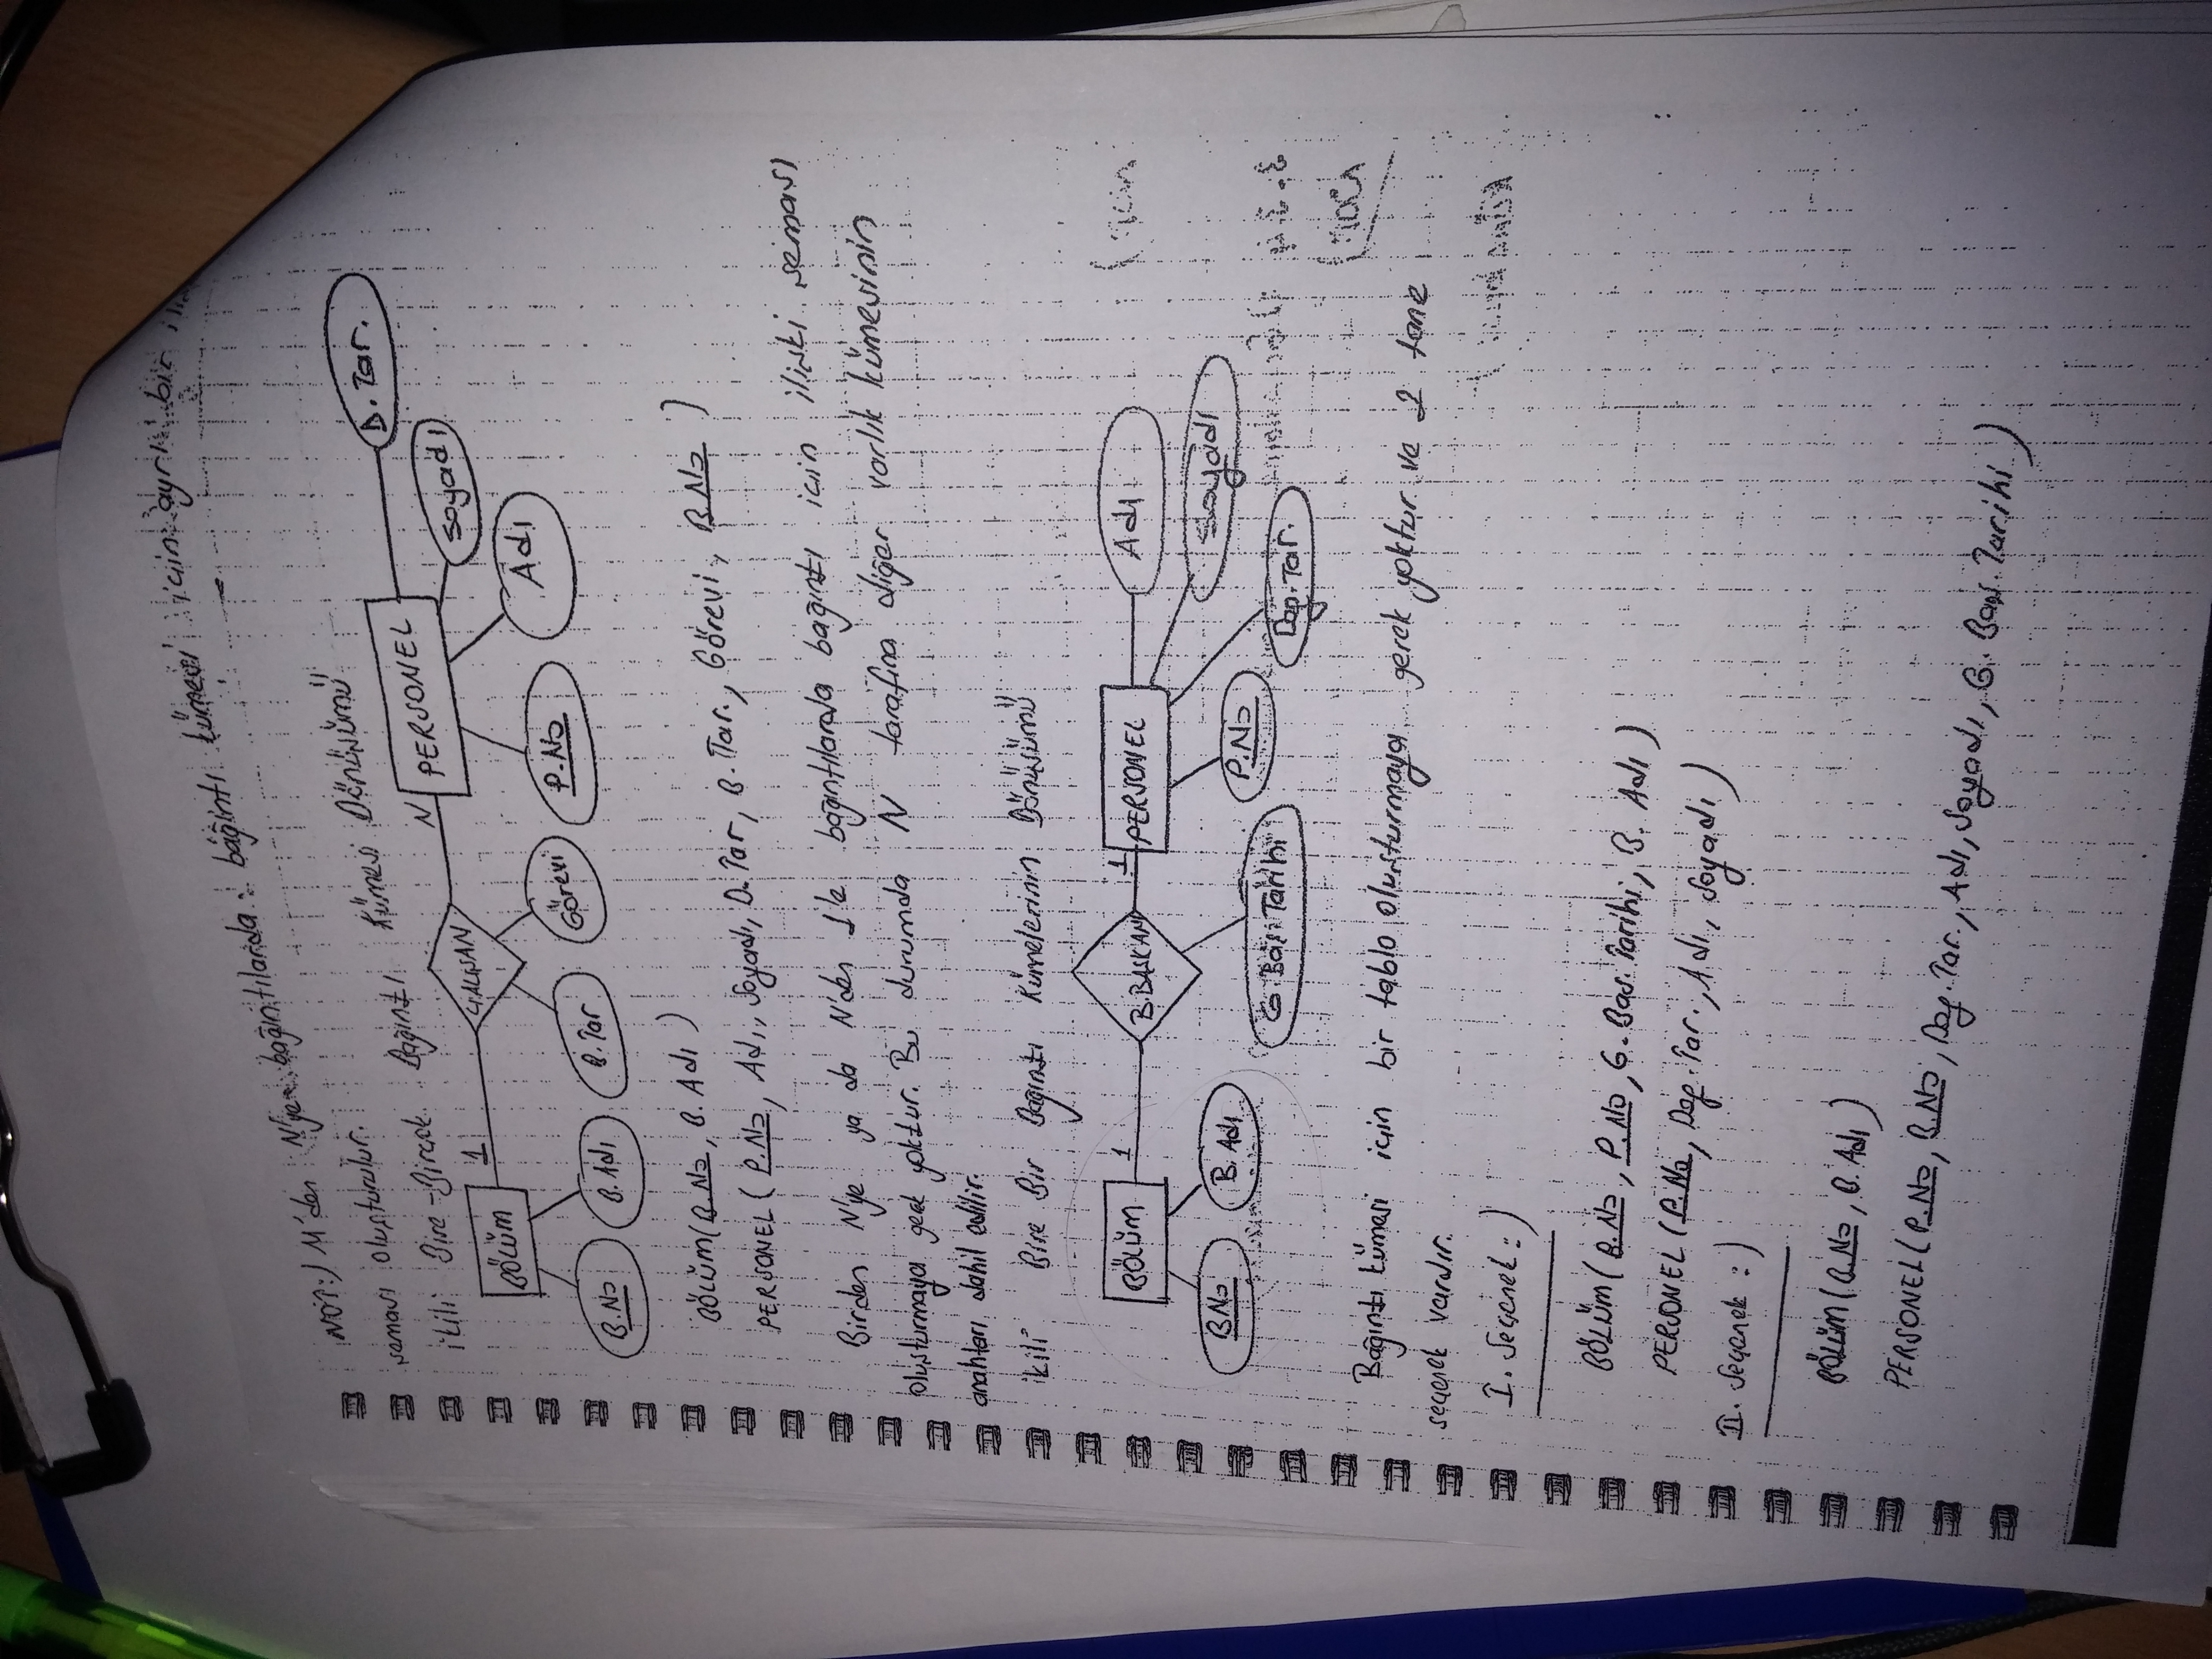 NOT:) M'den N'ye bağıntılarda: bağıntı kümesi için ayrı bir
şeması oluşturulur.
İkili Bire-Birçok Bağıntı Kümesi Dönüşümü
BÖLÜM 1 ÇALIŞAN N PERSONEL
B.No B.Adı B.Tar Görevi P.No Adı Soyadı D.Tar.
BÖLÜM(B.No, B.Adı)
PERSONEL(P.No, Adı, Soyadı, D.Tar, B.Tar, Görevi, B.No)
Birden N'ye ya da N'den 1'e bağıntılarda bağıntı için ilişki şeması
oluşturmaya gerek yoktur. Bu durumda N tarafına diğer varlık kümesinin
anahtarı dahil edilir.
İkili Bire Bir Bağıntı Kümelerinin Dönüşümü
BÖLÜM 1 B.BAŞKANI 1 PERSONEL
B.No B.Adı G.Baş.Tarihi P.No Doğ.Tar. Soyadı Adı
Bağıntı kümesi için bir tablo oluşturmaya gerek yoktur ve 2 tane
seçenek vardır.
I. Seçenek:)
BÖLÜM(B.No, P.No, G.Baş.Tarihi, B.Adı)
PERSONEL(P.No, Doğ.Tar., Adı, Soyadı)
II. Seçenek:)
BÖLÜM(B.No, B.Adı)
PERSONEL(P.No, B.No, Doğ.Tar, Adı, Soyadı, G.Baş.Tarihi)